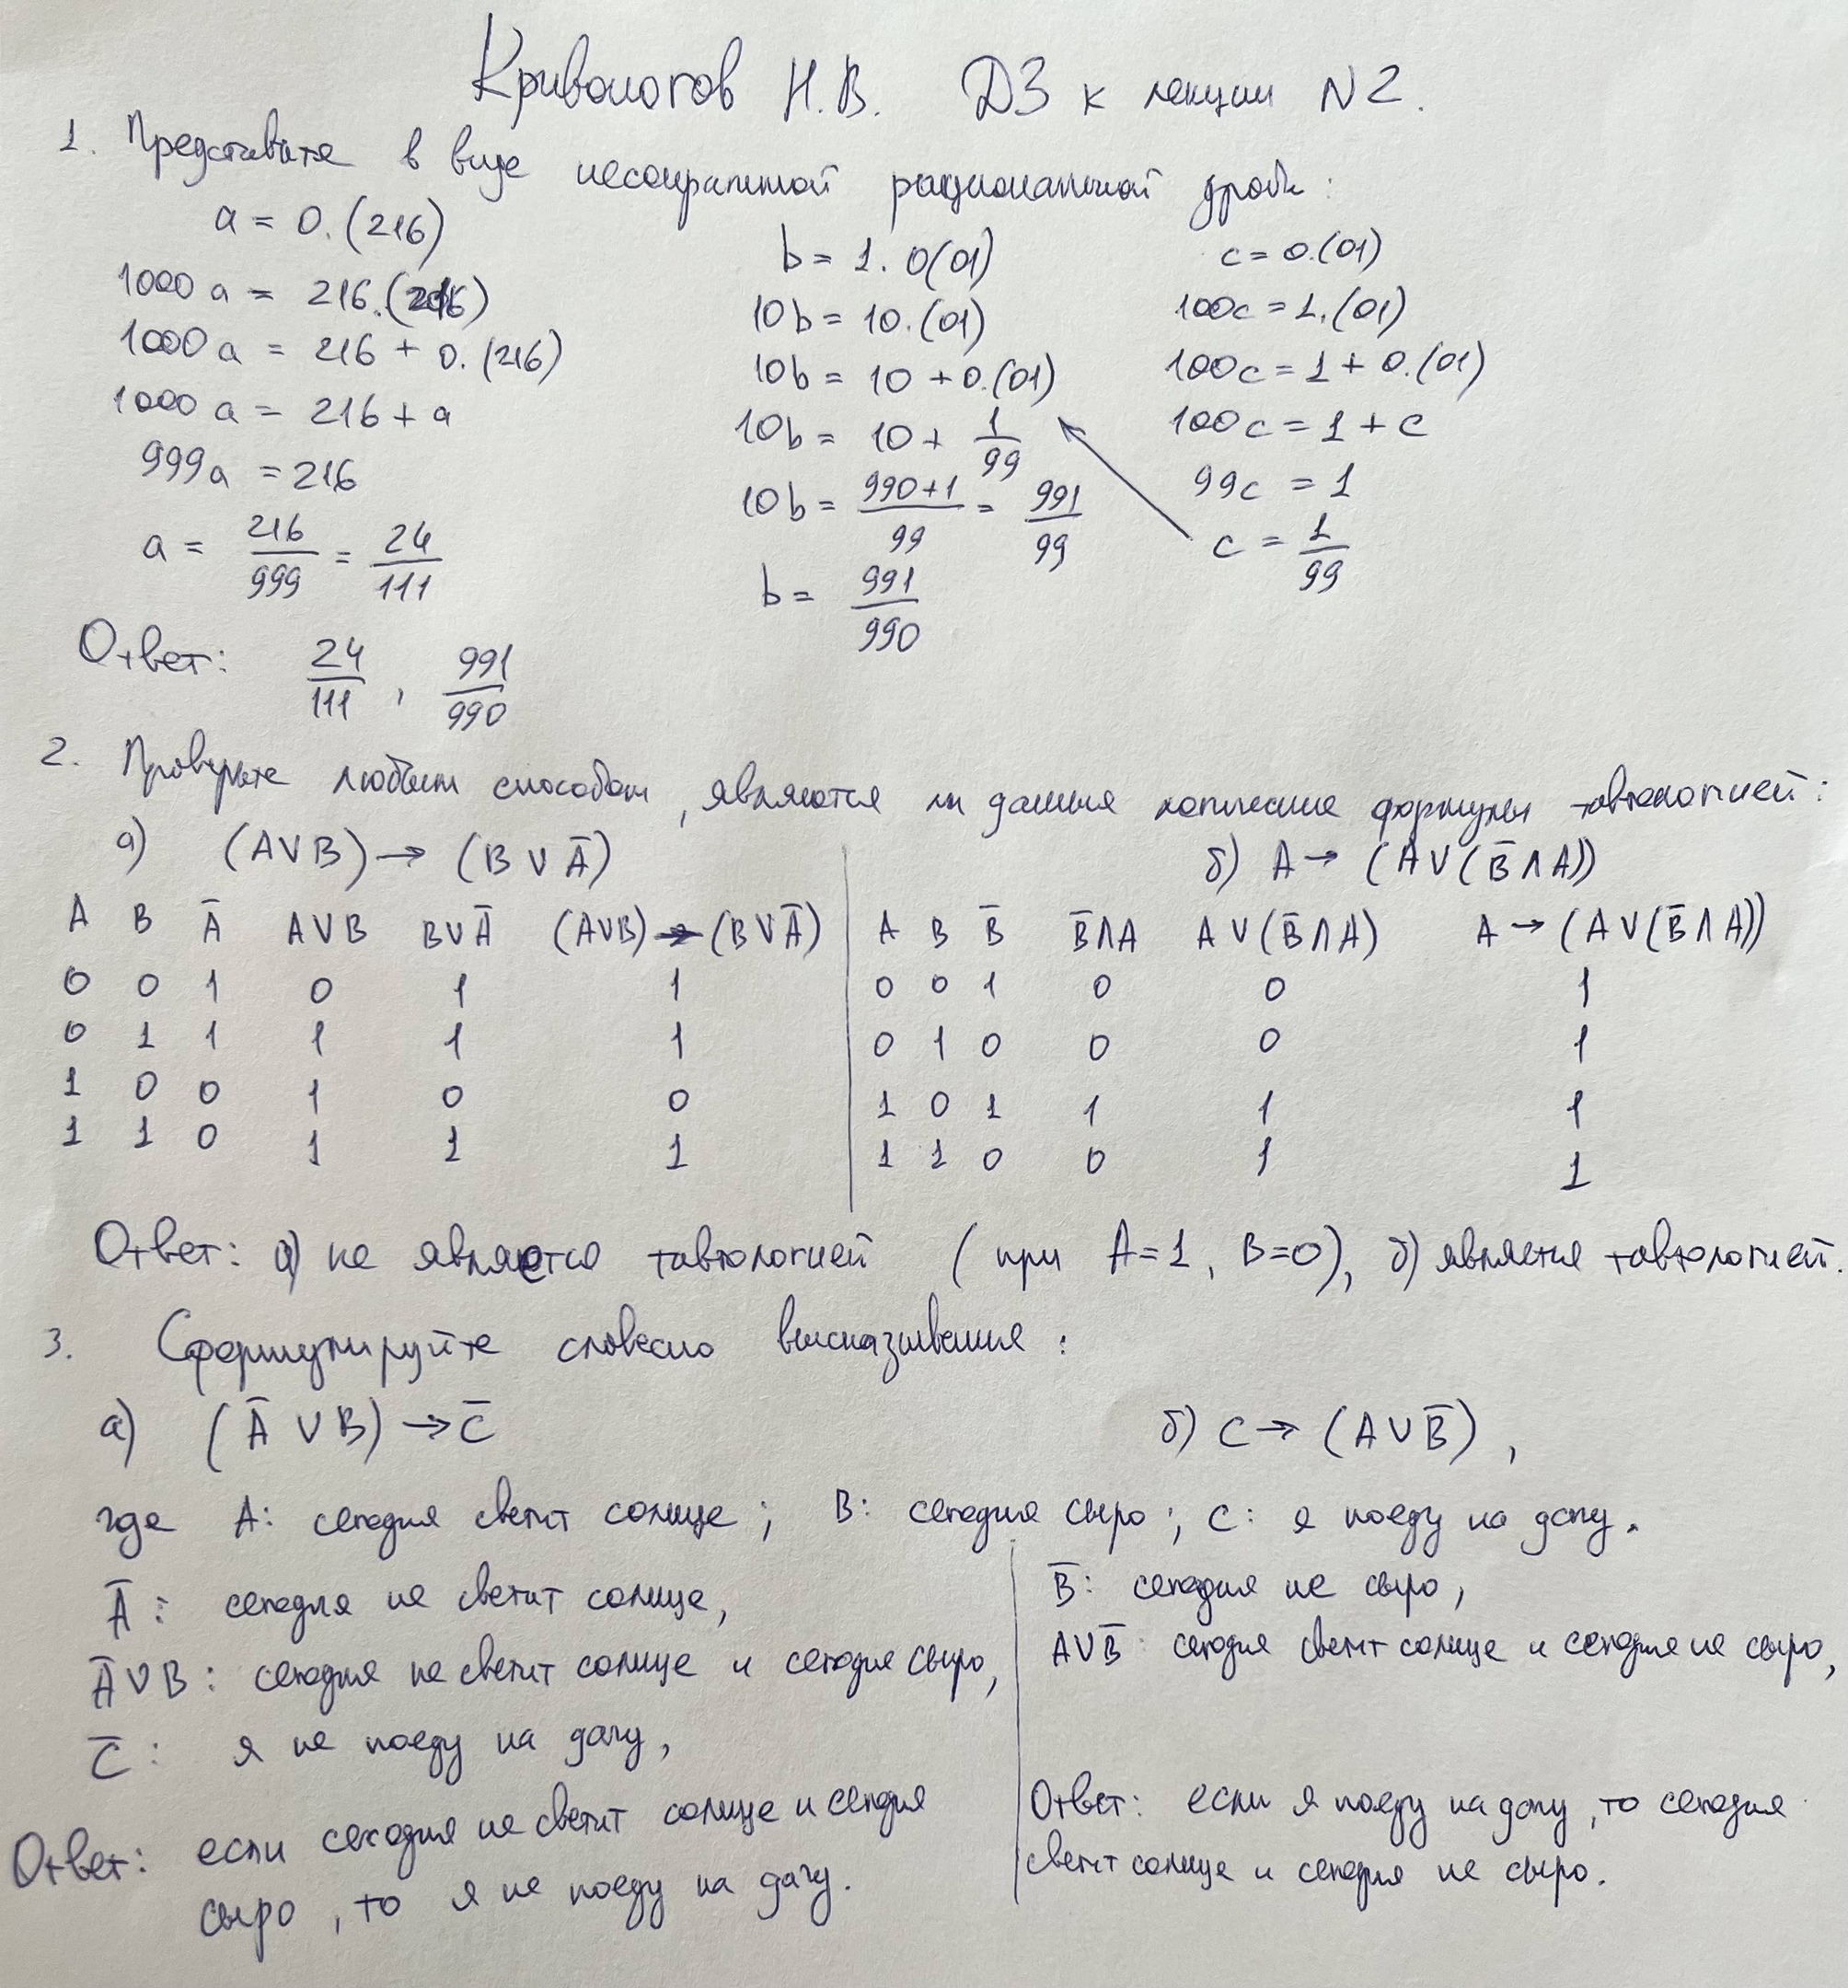 Кривологов Н.В. ДЗ к лекции N2.
1. Представьте в виде несократимой рациональной дроби:
a = 0.(216)
1000a = 216.(216)
1000a = 216 + 0.(216)
1000a = 216 + a
999a = 216
a = 216/999 = 24/111
b = 1.0(01)
10b = 10.(01)
10b = 10 + 0.(01)
10b = 10 + 1/99
10b = (990+1)/99 = 991/99
b = 991/990
c = 0.(01)
100c = 1.(01)
100c = 1 + 0.(01)
100c = 1 + c
99c = 1
c = 1/99
Ответ: 24/111, 991/990
2. Проверьте любым способом, являются ли данные логические формулы тавтологией:
а) (A∨B)→(B∨A̅)
A B A̅ A∨B B∨A̅ (A∨B)→(B∨A̅)
0 0 1 0 1 1
0 1 1 1 1 1
1 0 0 1 0 0
1 1 0 1 1 1
б) A→(A∨(B̅∧A))
A B B̅ B̅∧A A∨(B̅∧A) A→(A∨(B̅∧A))
0 0 1 0 0 1
0 1 0 0 0 1
1 0 1 1 1 1
1 1 0 0 1 1
Ответ: а) не является тавтологией (при A=1, B=0), б) является тавтологией.
3. Сформулируйте словесно высказывания:
а) (A̅∨B)→C̅ б) C→(A∨B̅),
где A: сегодня светит солнце; B: сегодня сыро; C: я поеду на дачу.
A̅: сегодня не светит солнце,
A̅∨B: сегодня не светит солнце и сегодня сыро,
C̅: я не поеду на дачу,
Ответ: если сегодня не светит солнце и сегодня
сыро, то я не поеду на дачу.
B̅: сегодня не сыро,
A∨B̅: сегодня светит солнце и сегодня не сыро,
Ответ: если я поеду на дачу, то сегодня
светит солнце и сегодня не сыро.